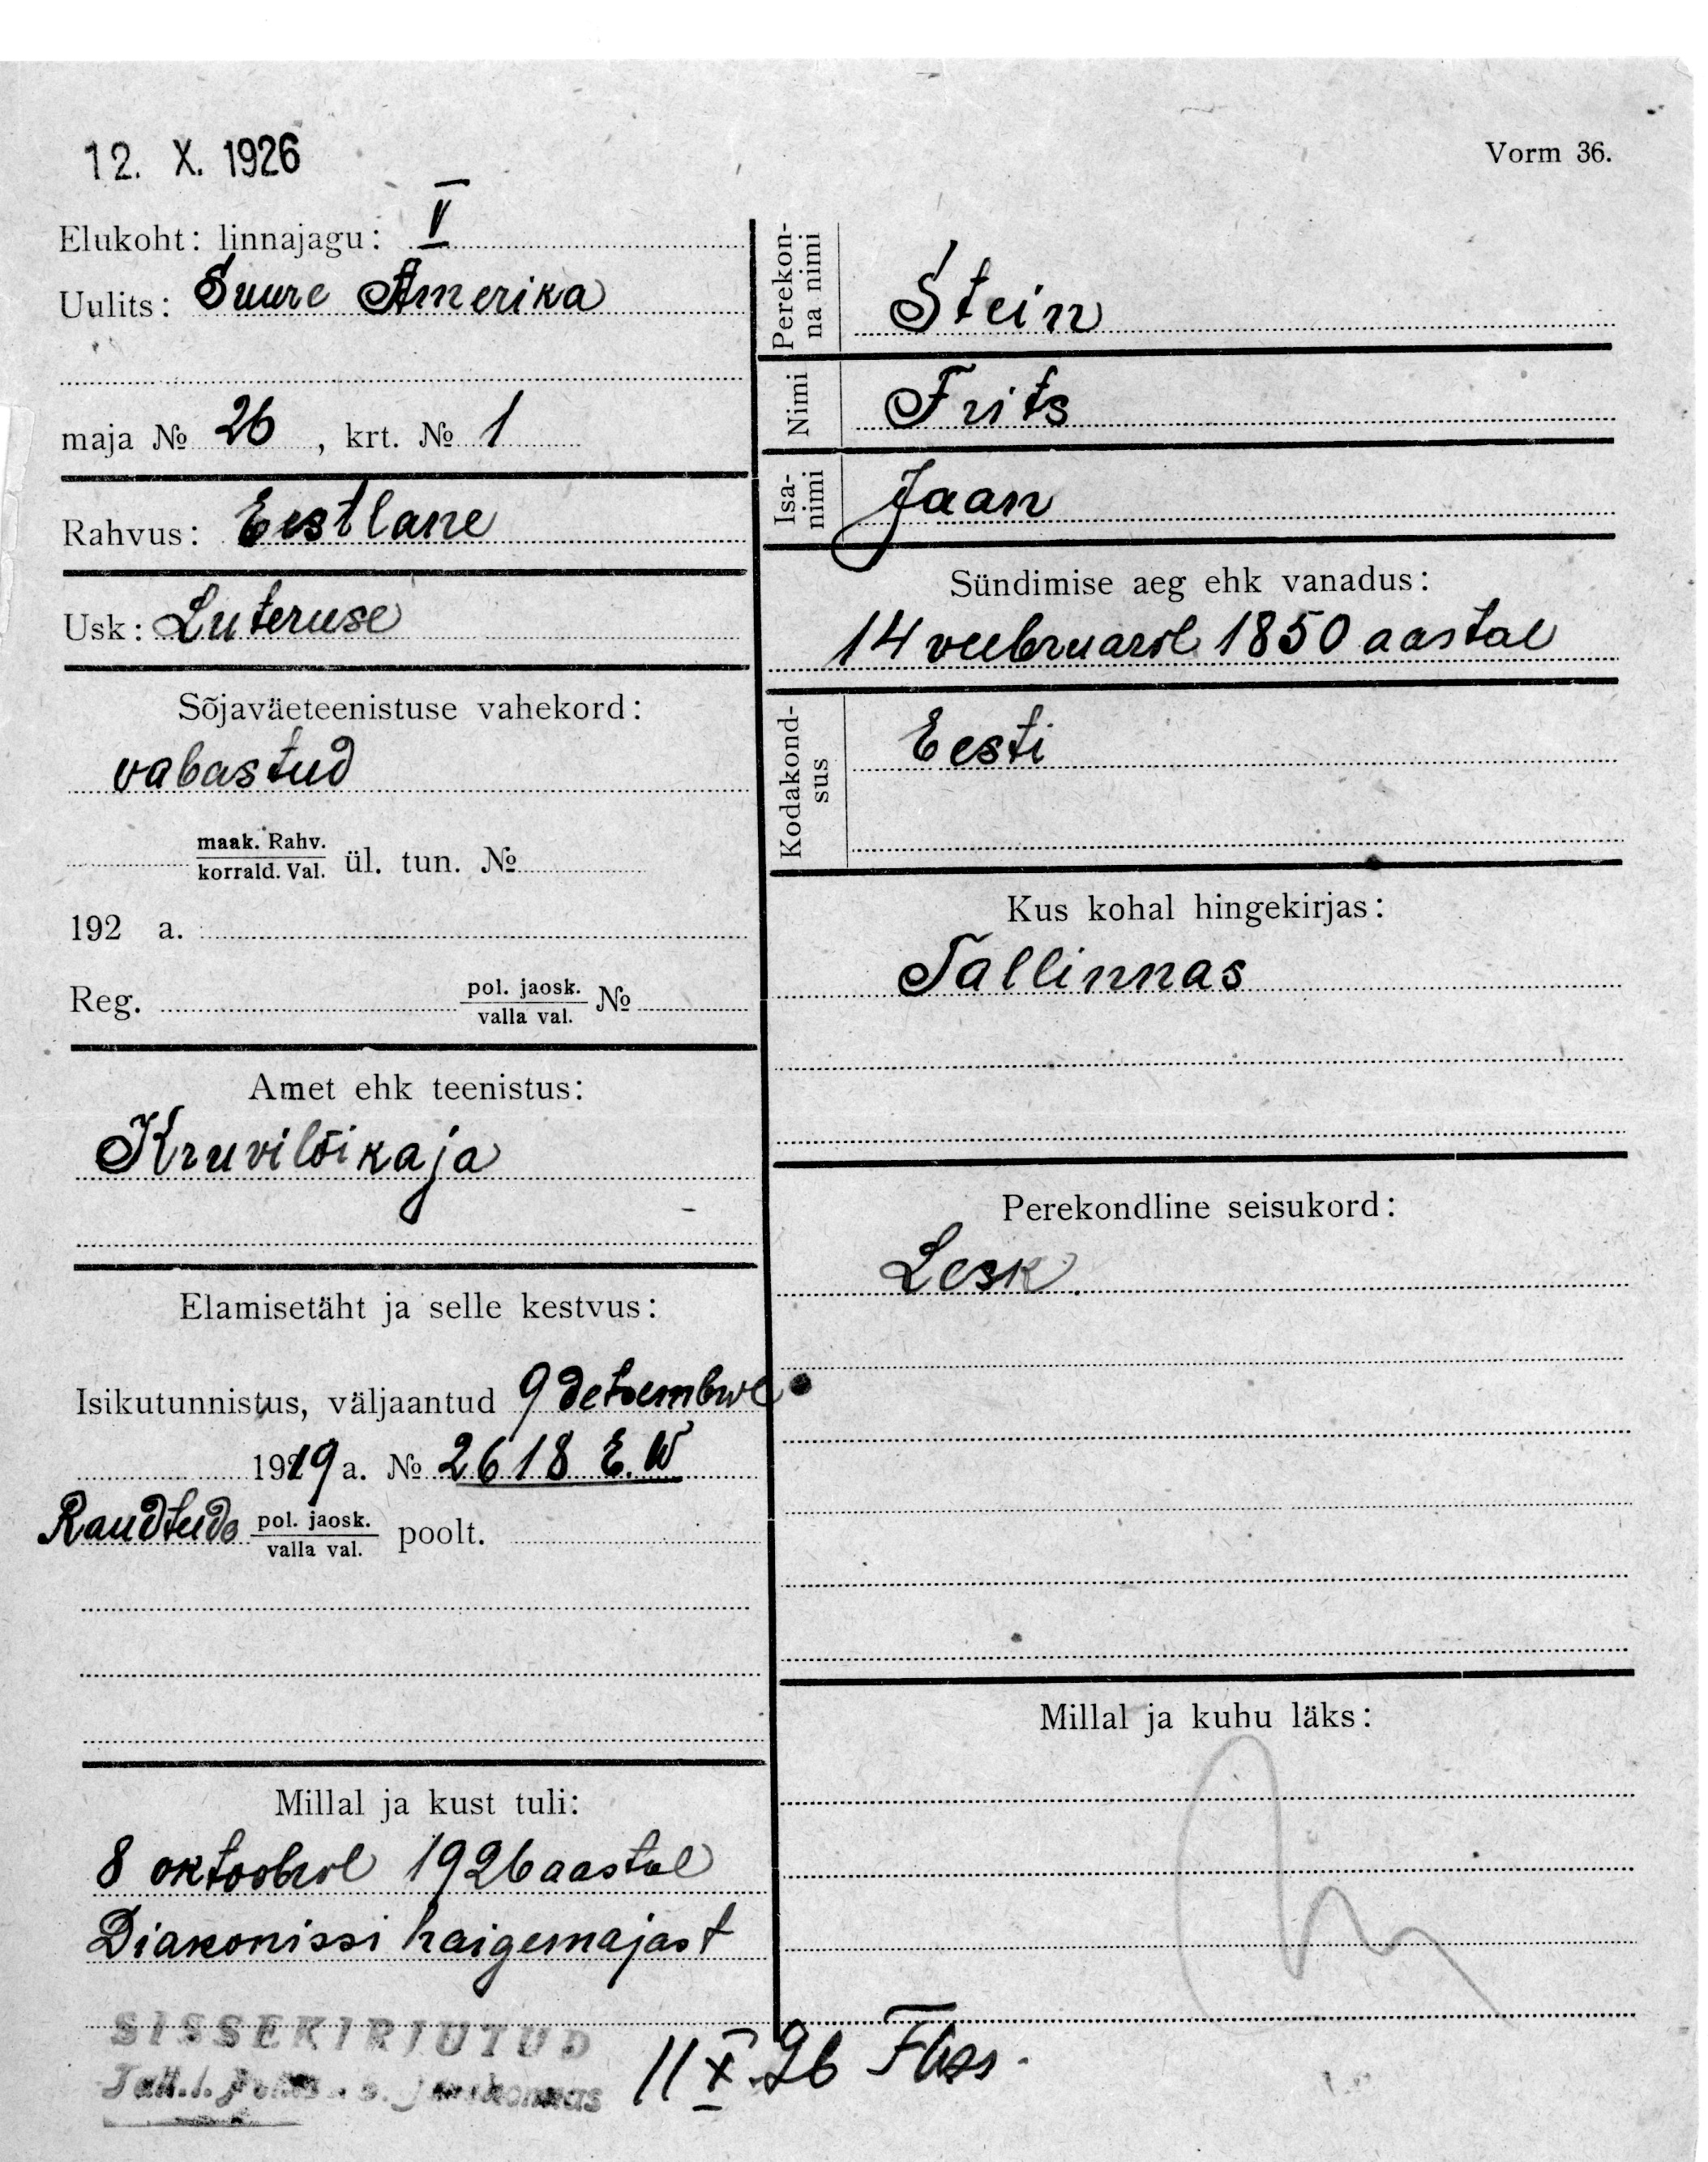 12. X. 1926
Vorm 36.
Elukoht: linnajagu: V
Uulits: Suure Amerika
maja № 26, krt. № 1
Rahvus: Eestlane
Usk: Luteruse
Sõjaväeteenistuse vahekord:
vabastud
maak. Rahv.
korrald. Val. ül. tun. №
192 a.
Reg. pol. jaosk. №
valla val.
Amet ehk teenistus:
Kruvilõikaja
Elamisetäht ja selle kestvus:
Isikutunnistus, väljaantud 9 detsembril
1919 a. № 2618 E.W
Raudtede pol. jaosk. poolt.
valla val.
Millal ja kust tuli:
8 oktoobril 1926 aastal
Diakonissi haigemajast
SISSEKIRJUTUD
Tall. jaoskonnas
Perekon-
na nimi
Stein
Nimi
Frits
Isa-
nimi
Jaan
Sündimise aeg ehk vanadus:
14 veebruaril 1850 aastal
Kodakond-
sus
Eesti
Kus kohal hingekirjas:
Tallinnas
Perekondline seisukord:
Lesk
Millal ja kuhu läks:
11 X 26